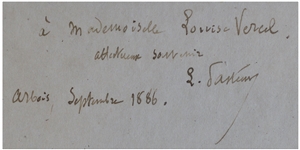 à Mademoiselle Louise Vercel.
affectueux souvenir
L. Pasteur
Arbois, Septembre 1886.